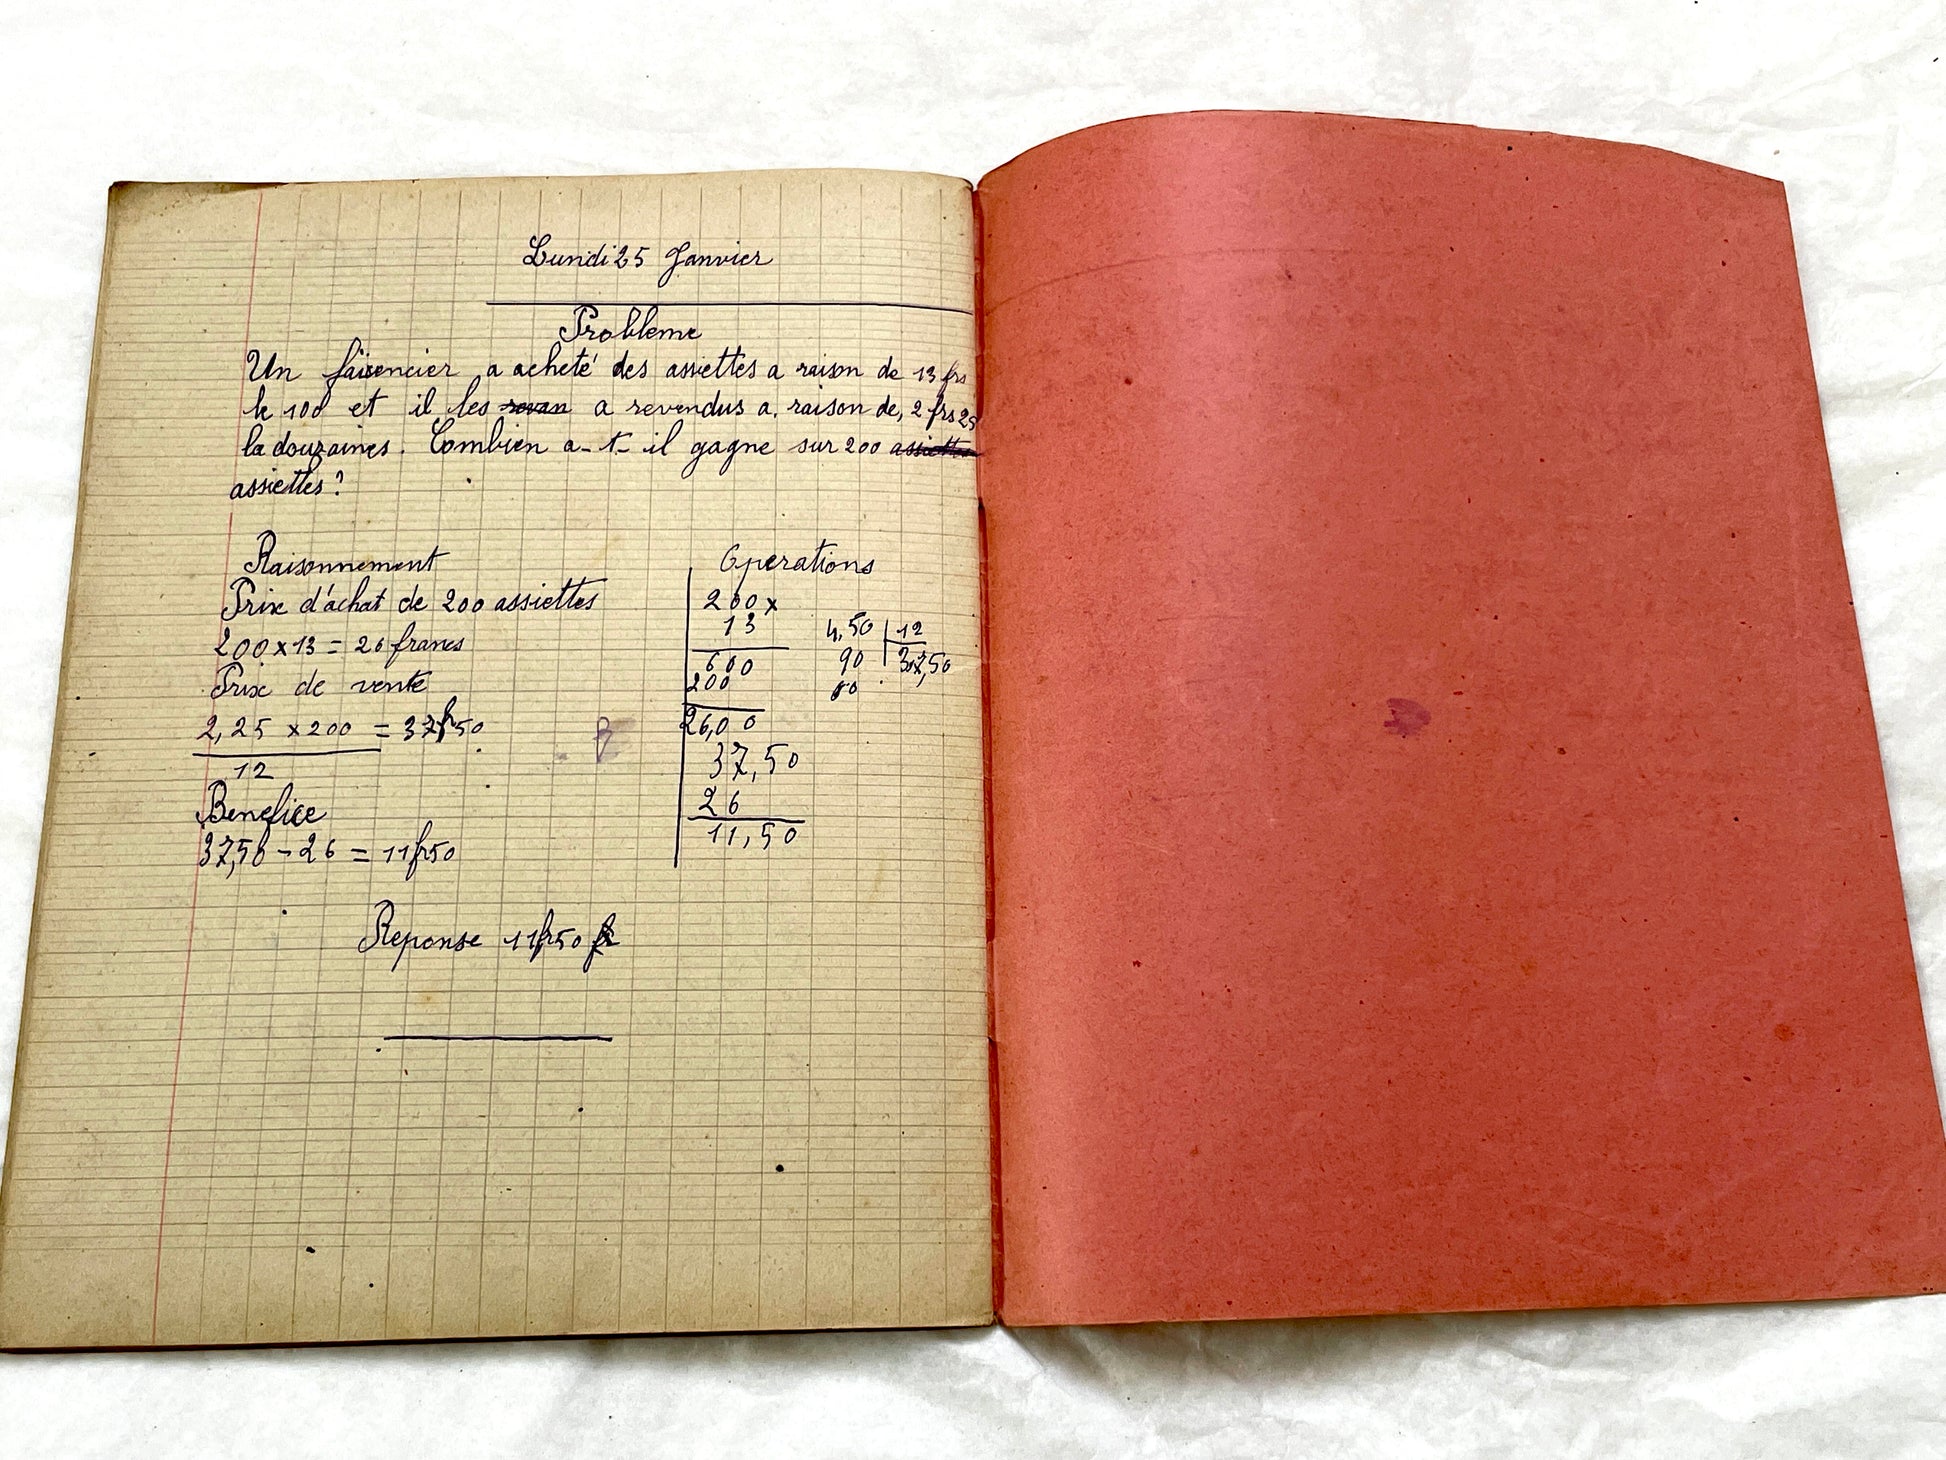 Lundi 25 Janvier
Probleme
Un faïencier a acheté des assiettes a raison de 13 frs
le 100 et il les revan a revendus a raison de, 2 frs 25
la douzaines. Combien a-t-il gagne sur 200 assiettes
assiettes?
Raisonnement
Prix d'achat de 200 assiettes
200 x 13 = 26 francs
Prix de vente
2,25 x 200 = 37fr50
12
Benefice
37,50 - 26 = 11fr50
Operations
200 x
13
600
200
26,00
37,50
26
11,50
4,50 12
90 37,50
60
B
Reponse 11fr50